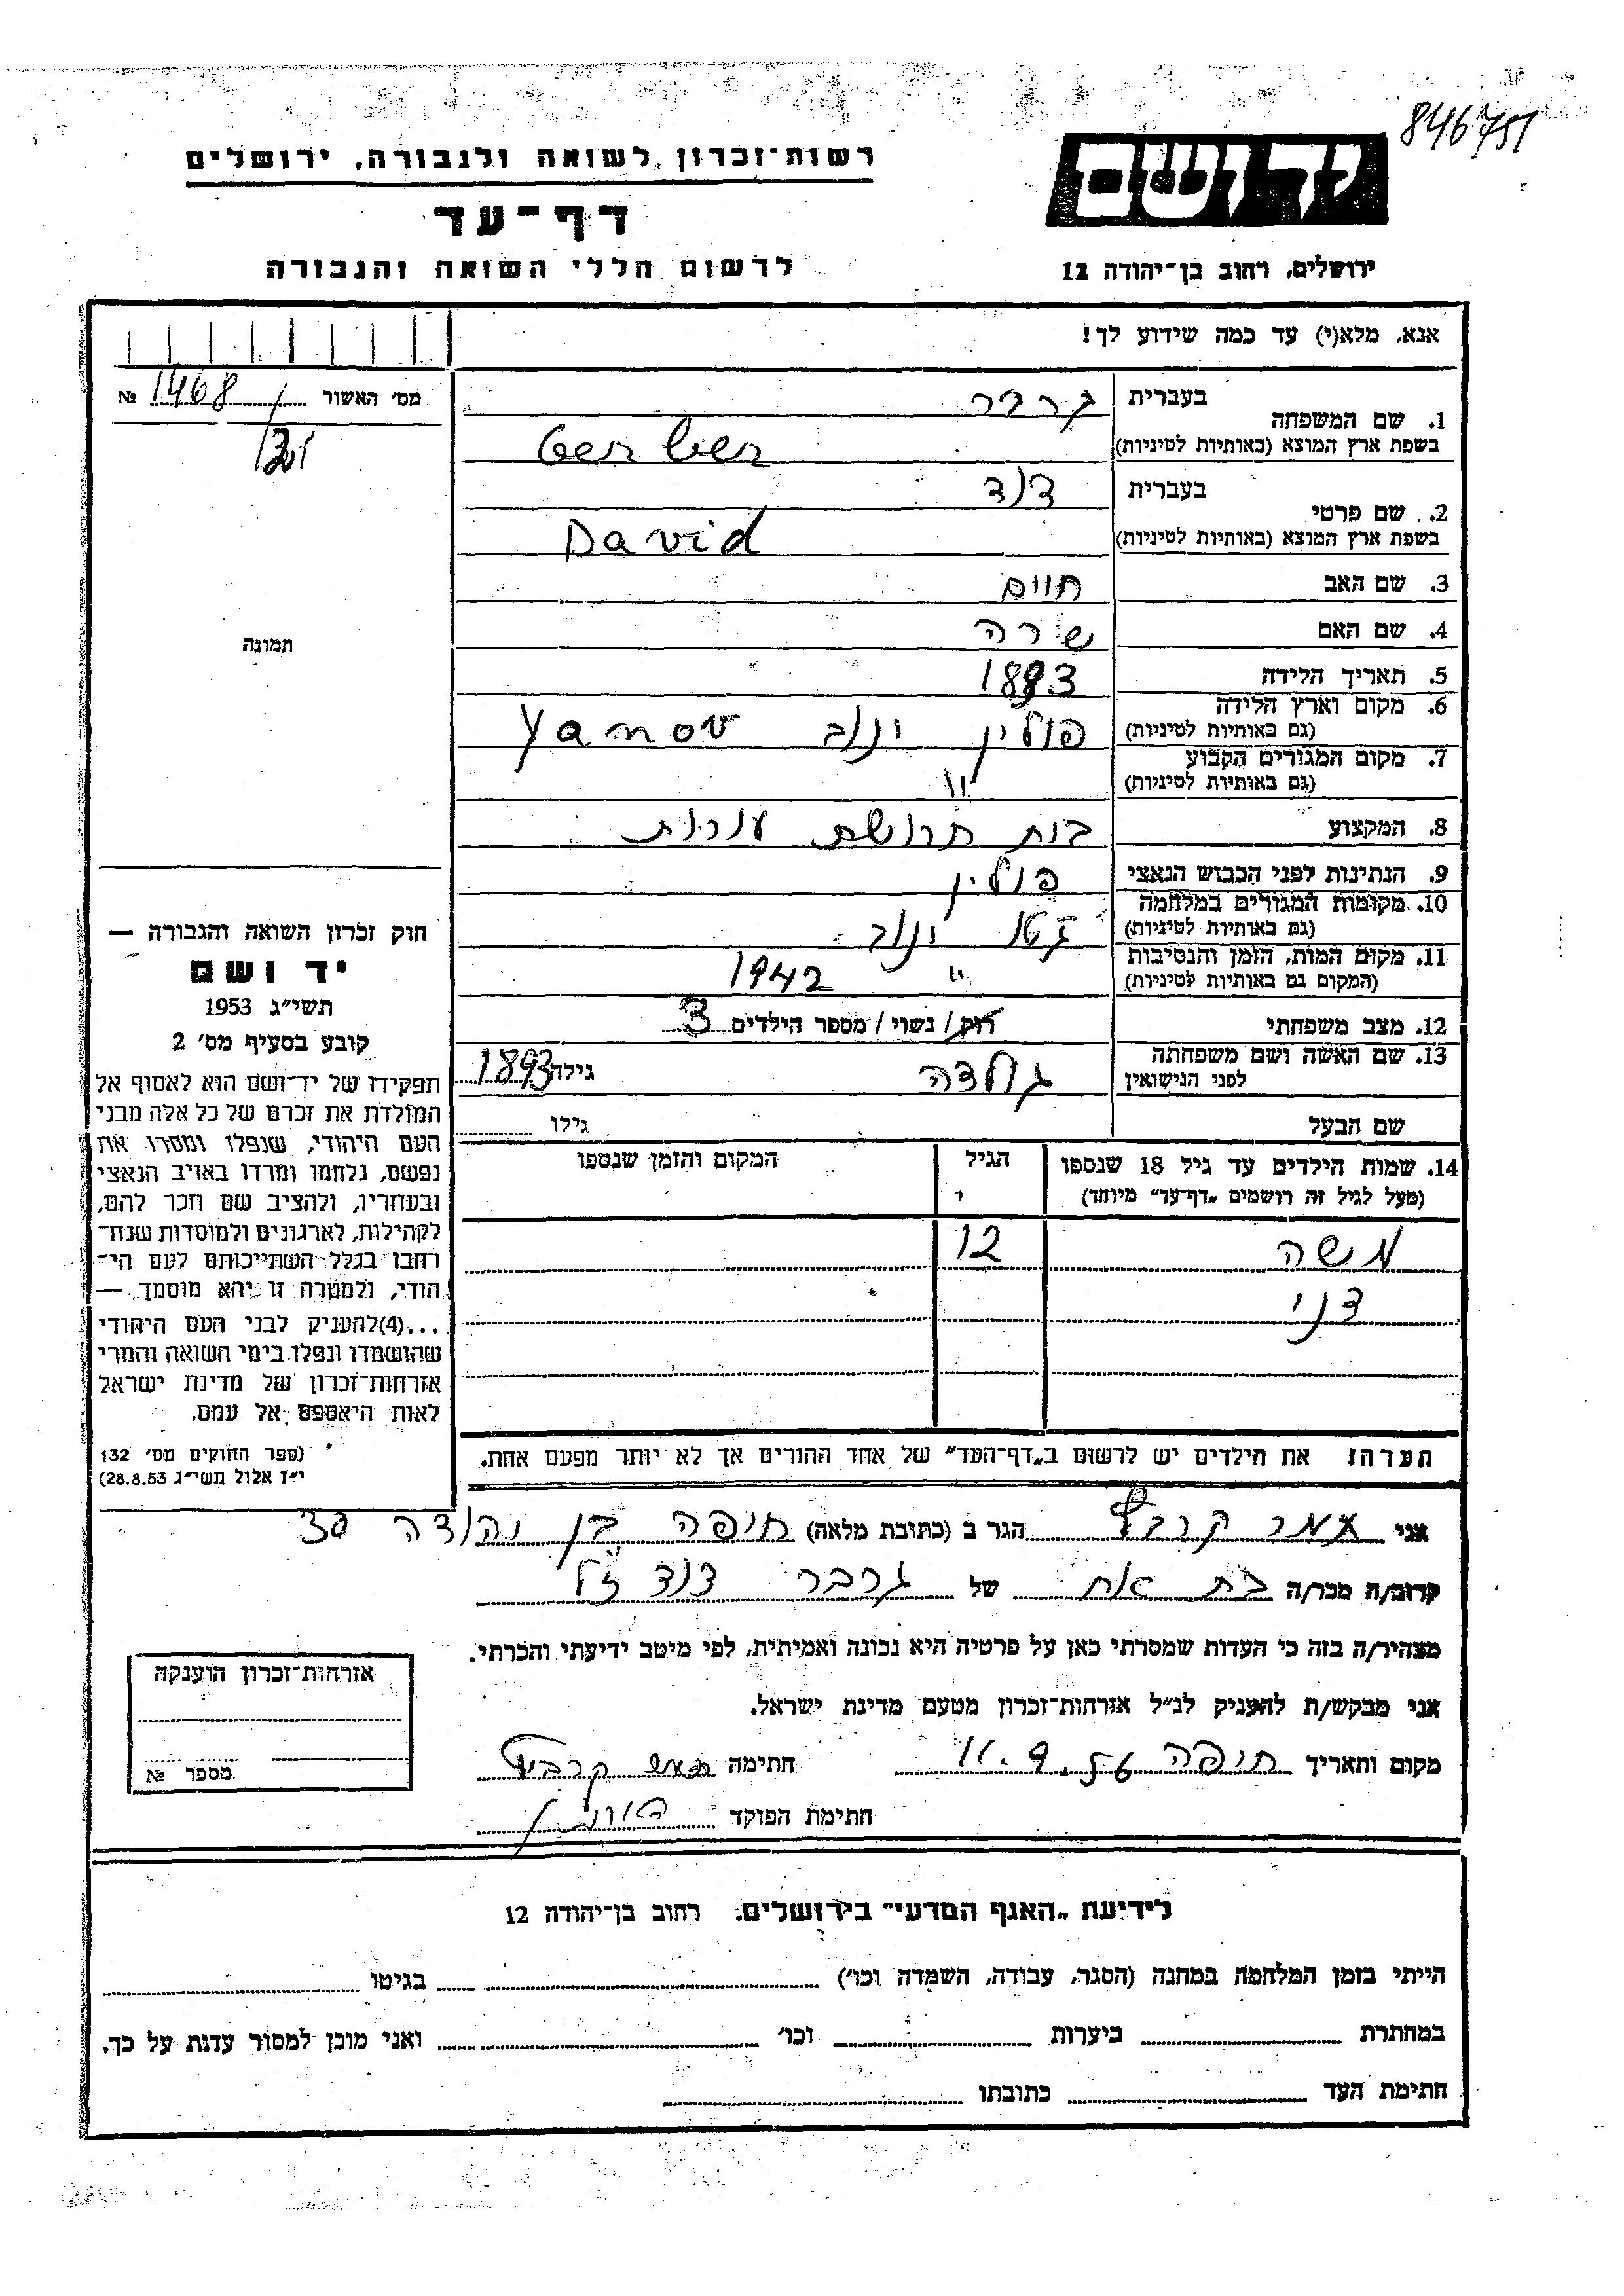 846751
יד ושם
רשות־זכרון לשואה ולגבורה, ירושלים
דף־עד
לרשום חללי השואה והגבורה
ירושלים, רחוב בן־יהודה 12
אנא, מלא(י) עד כמה שידוע לך!
מס׳ האשור 1468 №
תמונה
1. שם המשפחה בעברית גרבר
בשפת ארץ המוצא (באותיות לטיניות) Gerber
2. שם פרטי בעברית דוד
בשפת ארץ המוצא (באותיות לטיניות) David
3. שם האב חיים
4. שם האם שרה
5. תאריך הלידה 1893
6. מקום וארץ הלידה (גם באותיות לטיניות) פולין ינוב Yanov
7. מקום המגורים הקבוע (גם באותיות לטיניות) "
8. המקצוע בית חרושת עורות
9. הנתינות לפני הכבוש הנאצי פולין
10. מקומות המגורים במלחמה (גם באותיות לטיניות) גטו ינוב
11. מקום המות, הזמן והנסיבות (המקום גם באותיות לטיניות) " 1942
12. מצב משפחתי רוק / נשוי / מספר הילדים 3
13. שם האשה ושם משפחתה לפני הנישואין גולדה גילה 1893
שם הבעל גילו
14. שמות הילדים עד גיל 18 שנספו (מעל לגיל זה רושמים „דף־עד" מיוחד) הגיל המקום והזמן שנספו
משה 12
דני
הערה! את הילדים יש לרשום ב„דף־העד" של אחד ההורים אך לא יותר מפעם אחת.
חוק זכרון השואה והגבורה —
יד ושם
תשי״ג 1953
קובע בסעיף מס׳ 2
תפקידו של יד־ושם הוא לאסוף אל
המולדת את זכרם של כל אלה מבני
העם היהודי, שנפלו ומסרו את
נפשם, נלחמו ומרדו באויב הנאצי
ובעוזריו, ולהציב שם וזכר להם,
לקהילות, לארגונים ולמוסדות שנח־
רבו בגלל השתייכותם לעם הי־
הודי, ולמטרה זו יהא מוסמך —
...(4) להעניק לבני העם היהודי
שהושמדו ונפלו בימי השואה והמרי
אזרחות־זכרון של מדינת ישראל
לאות היאספם אל עמם.
(ספר החוקים מס׳ 132
י״ז אלול תשי״ג 28.8.53)
אני הגר ב (כתובת מלאה) חיפה בן יהודה 30
קרוב/ה מכר/ה בת אח של גרבר דוד ז"ל
מצהיר/ה בזה כי העדות שמסרתי כאן על פרטיה היא נכונה ואמיתית, לפי מיטב ידיעתי והכרתי.
אני מבקש/ת להעניק לנ״ל אזרחות־זכרון מטעם מדינת ישראל.
מקום ותאריך חיפה 11.9.56 חתימה
חתימת הפוקד
אזרחות־זכרון הוענקה
מספר №
לידיעת „האגף המדעי" בירושלים, רחוב בן־יהודה 12
הייתי בזמן המלחמה במחנה (הסגר, עבודה, השמדה וכו׳) בגיטו
במחתרת ביערות וכו׳ ואני מוכן למסור עדות על כך.
חתימת העד כתובתו